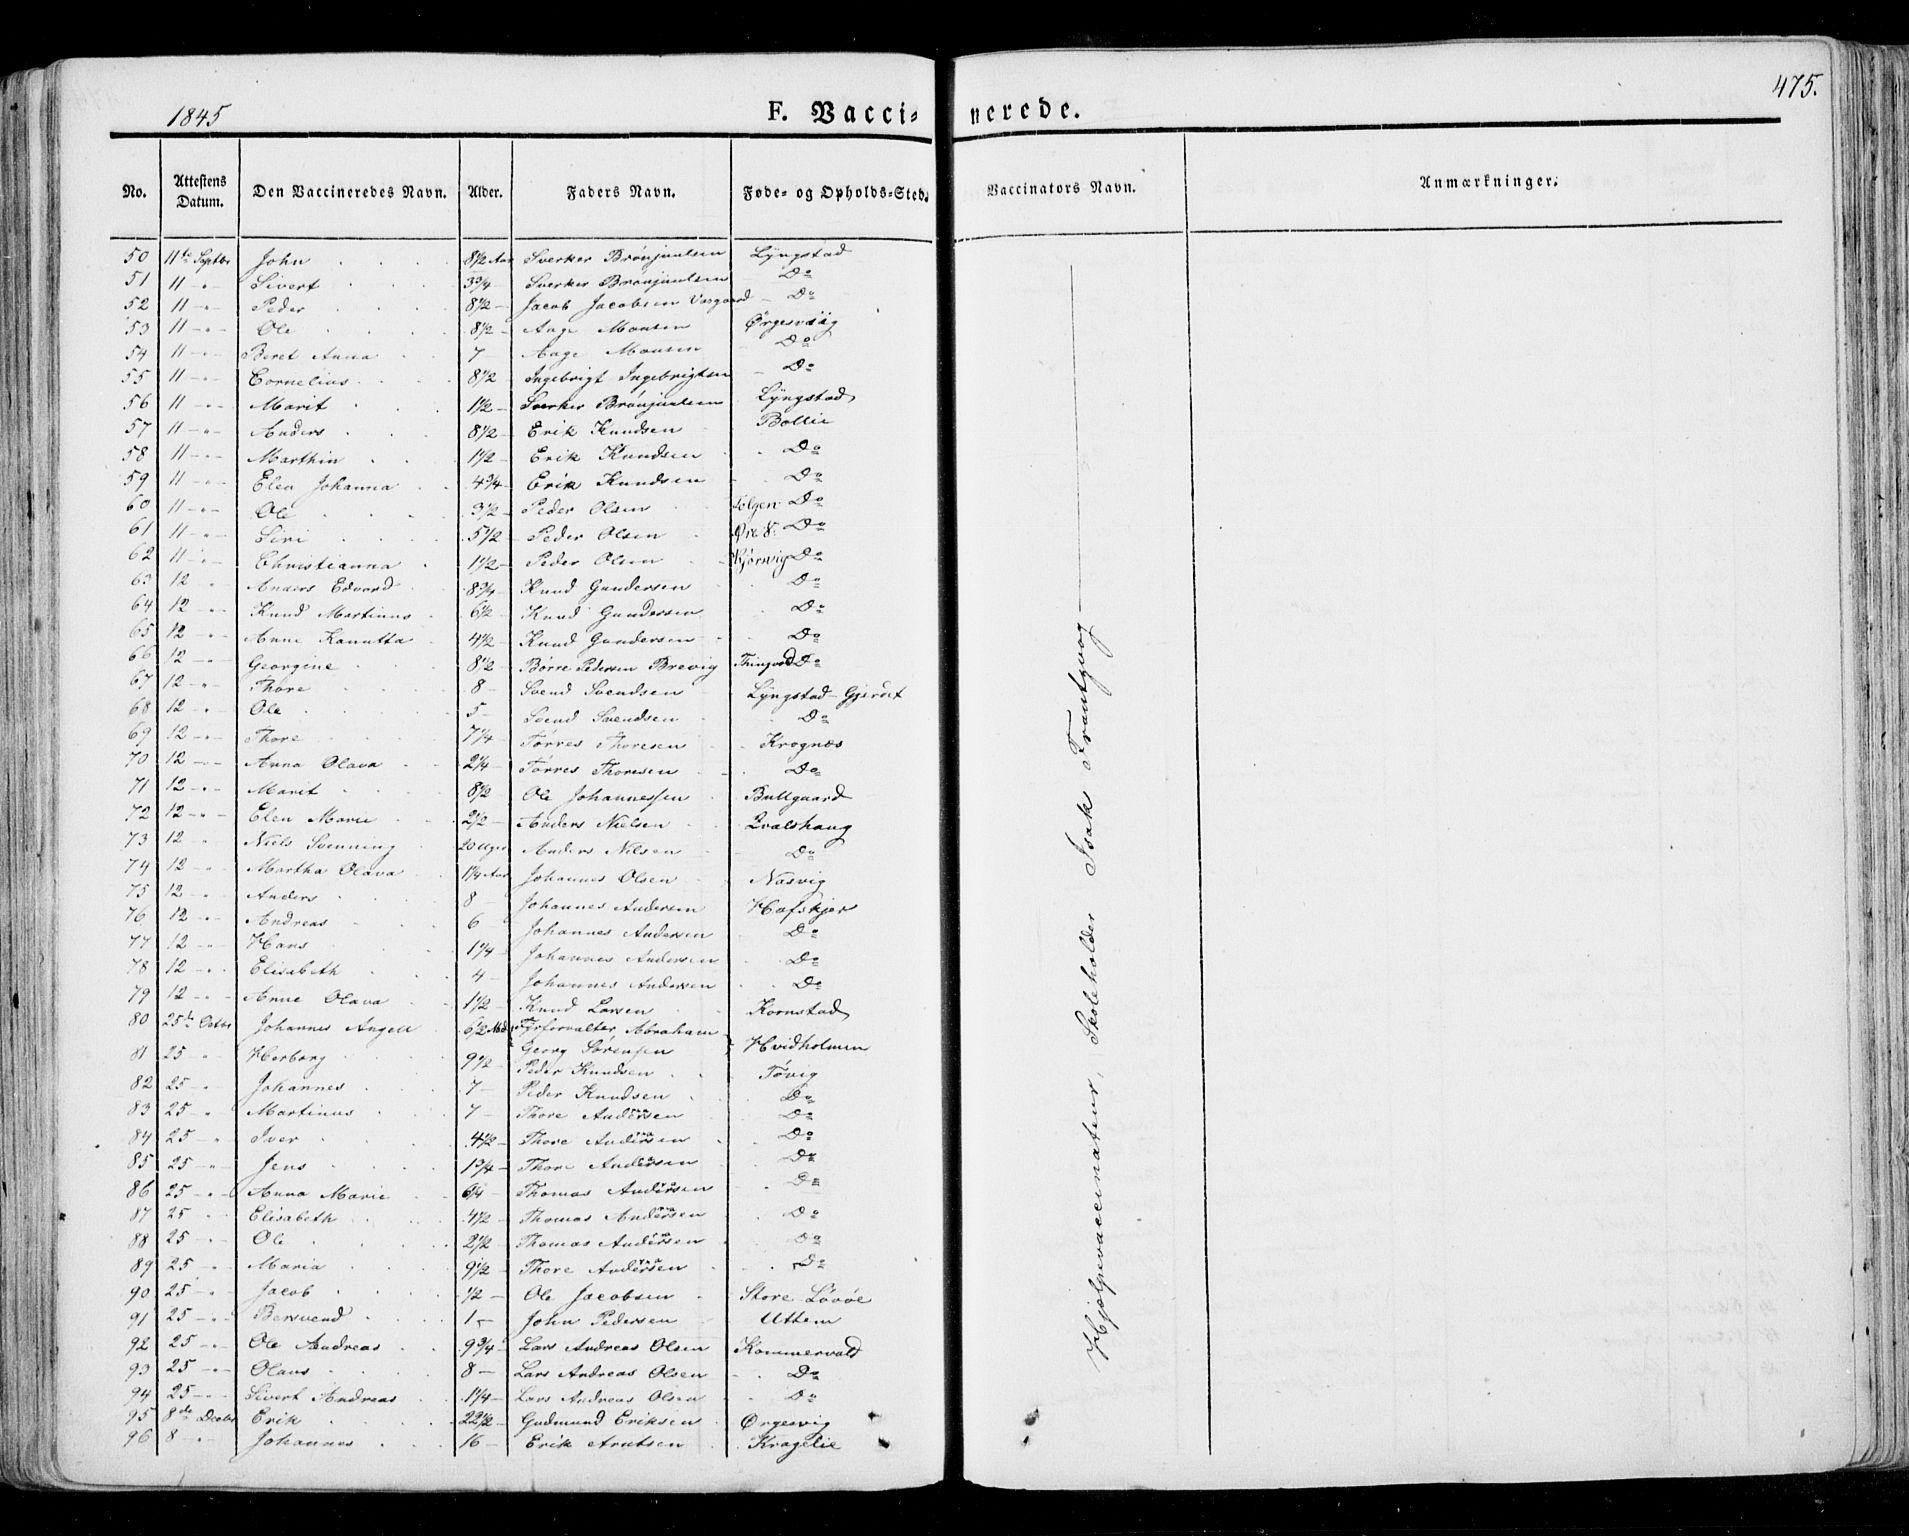 475.
1845 F. Vacci- nerede.
No. Attestens Datum. Den Vaccineredes Navn. Alder. Faders Navn. Føde- og Opholds-Sted. Vaccinators Navn. Anmærkninger.
50 11te Septbr John 8 1/2 Aar Sverker Brönjulsen Lÿngstad
51 11 - " - Sivert 3 3/4 Sverker Brönjulsen Do
52 11 - " - Peder 8 1/2 - Jacob Jacobsen Do
53 11 - " - Ole 8 1/2 - Aage Monsen Ørgesviig
54 11 - " - Beret Anna 7 - Aage Monsen Do
55 11 - " - Cornelius 8 1/2 - Ingebrigt Ingebrigtsen Do
56 11 - " - Marit 1 1/2 - Sverker Brönjulsen Lÿngstad
57 11 - " - Anders 8 1/2 - Erik Knudsen Bollie
58 11 - " - Marthin 1 1/2 - Erik Knudsen Do
59 11 - " - Elen Johanna 4 3/4 - Erik Knudsen Do
60 11 - " - Ole 3 1/2 - Peder Olsen Do
61 11 - " - Siri 5 1/2 - Peder Olsen Do
62 11 - " - Christianna 1 1/2 - Peder Olsen Do
63 12 " Anders Edvard 8 3/4 - Knud Gundersen Do
64 12 - " - Knud Martinus 6 1/2 - Knud Gundersen Do
65 12 - " - Anne Kanutta 4 1/2 - Knud Gundersen Do
66 12 - " - Georgine 8 1/2 - Börre Pedersen Brevig Thingvold Do
67 12 - " - Thore 8 - Svend Svendsen Lÿngstad-
68 12 - " - Ole 5 - Svend Svendsen Do
69 12 - " - Thore 7 1/4 - Törres Thoresen Krognæs
70 12 - " - Anna Olava 2 1/4 - Törres Thoresen Do
71 12 - " - Marit 8 1/2 - Ole Johannessen Bultgaard
72 12 - " - Elen Marie 2 1/2 - Anders Nielsen Qvalshaug
73 12 " Niels Svenning 20 Uger Anders Nilsen Do
74 12 - " - Martha Olava 1 1/4 Aar Johannes Olsen Næsvig
75 12 - " - Anders 8 - Johannes Andersen Hafskjer
76 12 - " - Andreas 6 Johannes Andersen Do
77 12 - " - Hans 1 1/4 - Johannes Andersen Do
78 12 - " - Elisabeth 4 - Johannes Andersen Do
79 12 - " - Anne Olava 1 1/2 - Knud Larsen Kornstad
80 25de Octbr Johannes Angell 6 1/2 Md. Fyrforvalter Abraham
Georg Sörensen Hvidholmen
81 25 " Herborg 9 1/2 - Peder Knudsen Tövig
82 25 - " Johannes 7 - Peder Knudsen Do
83 25 " Martinus 7 - Thore Andersen Do
84 25 - " Iver 4 1/2 - Thore Andersen Do
85 25 - " - Jens 1 3/4 - Thore Andersen Do
86 25 - " - Anna Marie 6/4 - Thomas Andersen Do
87 25 " Elisabeth 4 1/2 - Thomas Andersen Do
88 25 - " Ole 2 1/2 - Thomas Andersen Do
89 25 - " - Maria 9 1/2 - Thore Andersen Do
90 25 - " - Jacob 1/2 - Ole Jacobsen Store Lövöe
91 25 - " - Bersvend 1 - John Pedersen Uthem
92 25 - " - Ole Andreas 9 3/4 - Lars Andreas Olsen Kommervold
93 25 - " - Olaus 8 - Lars Andreas Olsen Do
94 25 - " - Sivert Andreas 1 1/4 - Lars Andreas Olsen Do
95 8de Decbr Erik 22 1/2 - Gudmund Eriksen Ørgesvig
96 8 - " - Johannes 16 - Erik Arntsen Kragelie
Hjælpevaccinateur, Skoleholder Isak Frantzvog